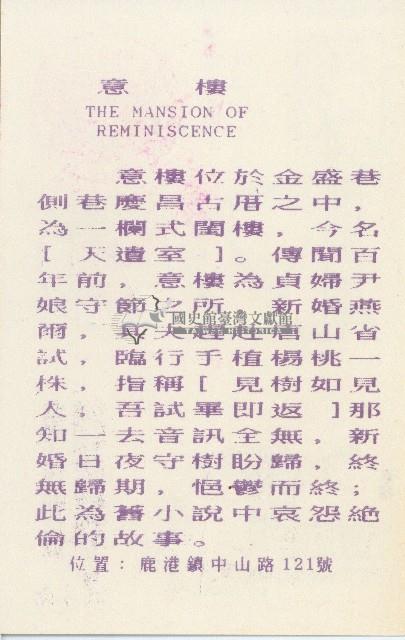 意 樓
THE MANSION OF
REMINISCENCE
意樓位於金盛巷
側巷慶昌古厝之中，
為一欄式閨樓，今名
[天遺室]。傳聞百
年前，意樓為貞婦尹
娘守節之所，新婚燕
爾，良夫唐山省
試，臨行手植楊桃一
株，指稱[見樹如見
人，吾試畢即返]那
知一去音訊全無，新
婚日夜守樹盼歸，終
無歸期，悒鬱而終；
此為舊小說中哀怨絕
倫的故事。
位置：鹿港鎮中山路121號
國史館臺灣文獻館